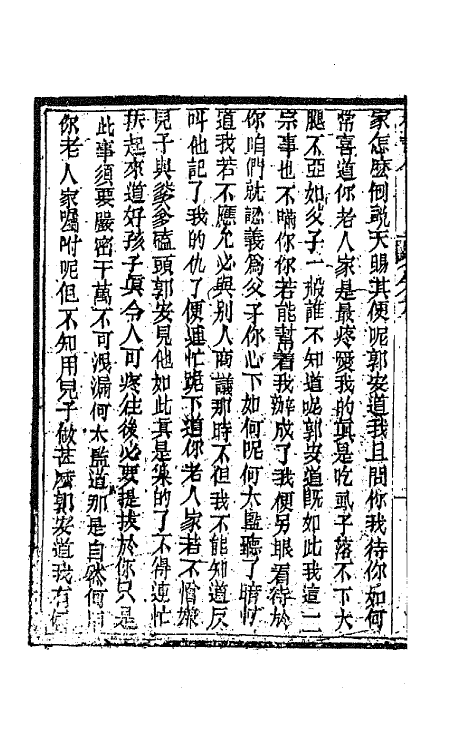 家怎麼倒說天賜其便呢郭安道我且問你我待你如何
常喜道你老人家是最疼愛我的真是吃虱子落不下大
腿不亞如父子一般誰不知道呢郭安道既如此我這一
宗事也不瞞你你若能幫着我辦成了我便另眼看待於
你咱們就認義為父子你心下如何呢何太監聽了暗忖
道我若不應允必與別人商議那時不但我不能知道反
叫他記了我的仇了便連忙跪下道你老人家若不憎嫌
兒子與爹爹磕頭郭安見他如此真是樂的了不得連忙
扶起來道好孩子真令人可疼往後必要提拔於你只是
此事須要嚴密千萬不可洩漏何太監道那是自然何用
你老人家囑咐呢但不知用兒子做甚麼郭安道我有